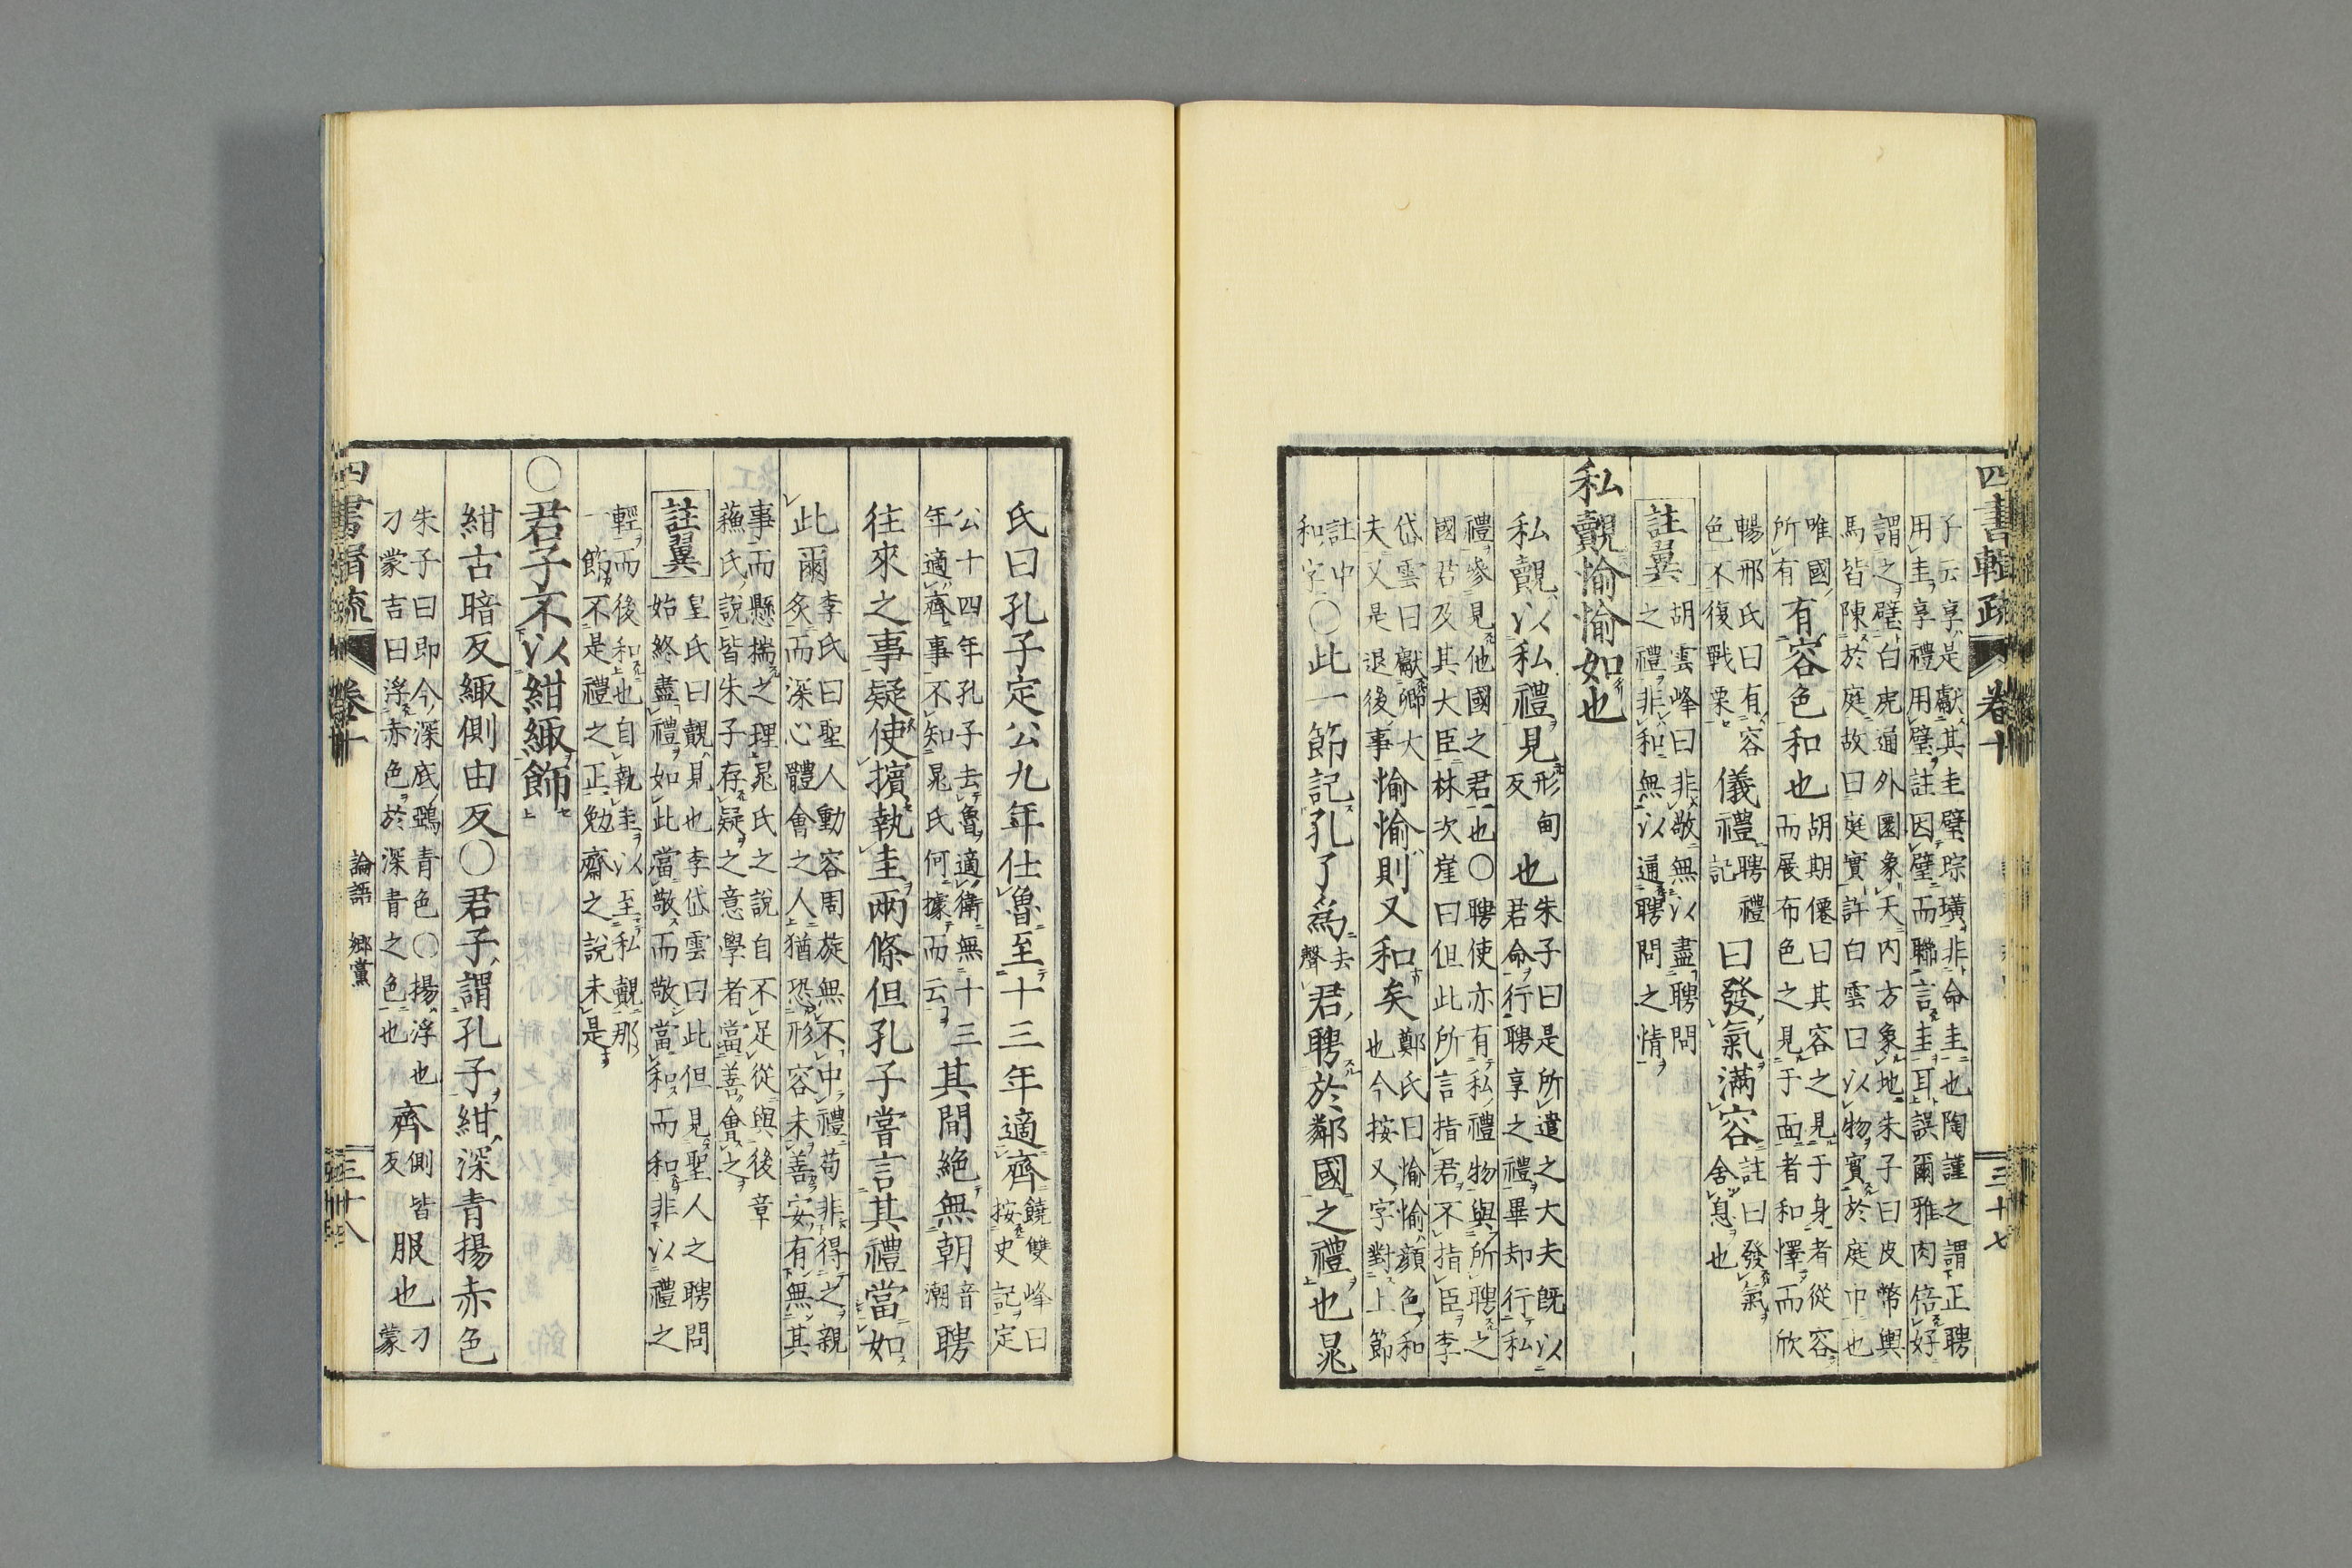 四書輯疏 卷十 三十七
子云享是獻其圭璧琮璜非命圭也陶謹之謂正聘
用圭享禮用璧註因璧而聯言圭耳誤爾雅肉倍好
謂之璧白虎通外圜象天內方象地朱子曰皮幣輿
馬皆陳於庭故曰庭實許白雲曰以物實於庭中也
唯國所有 有容色和也 胡期僊曰其容之見于身者從容
而展布色之見于面者和懌而欣
暢邢氏曰有容色不復戰栗 儀禮 聘禮記 曰發氣滿容 註曰發氣舍息也
註翼 胡雲峰曰非敬無以盡聘問
之禮非和無以通聘問之情
私覿愉愉如也
私覿以私禮見 形甸反 也 朱子曰是所遣之大夫既以
君命行聘享之禮畢却行私
禮參見他國之君也〇聘使亦有私禮物與所聘之
國君及其大臣林次崖曰但此所言指君不指臣李
岱雲曰獻卿大夫又是退後事 愉愉則又和矣 鄭氏曰愉愉顏色和
也今按又字對上節
註中和字 〇此一節記孔子為 去聲 君聘於鄰國之禮也晁
氏曰孔子定公九年仕魯至十三年適齊 饒雙峰曰按史記定
公十四年孔子去魯適衛無十三
年適齊事不知晁氏何據而云 其間絶無朝 音潮 聘
往來之事疑使擯執圭兩條但孔子嘗言其禮當如
此爾 李氏曰聖人動容周旋無不中禮苟非得之親
炙而深心體會之人猶恐形容未善安有無其
事而懸揣之理晁氏之說自不足從與後章
蘓氏說皆朱子存疑之意學者當善會之
註翼 皇氏曰覿見也李岱雲曰此但見聖人之聘問
始終盡禮如此當敬而敬當和而和非以禮之
輕而後和也自執圭以至私覿那
一節不是禮之正勉齋之說未是
〇君子不以紺緅飾
紺古暗反緅側由反〇君子謂孔子紺深青揚赤色
朱子曰即今深底鵶青色〇揚浮也
刁蒙吉曰浮赤色於深青之色也 齊 側皆反 服也 刁蒙
四書輯疏 卷十 論語 鄉黨 三十八